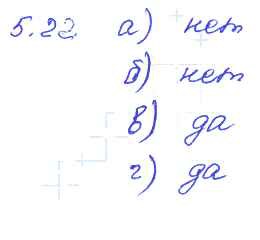 5.22. а) нет
б) нет
в) да
г) да